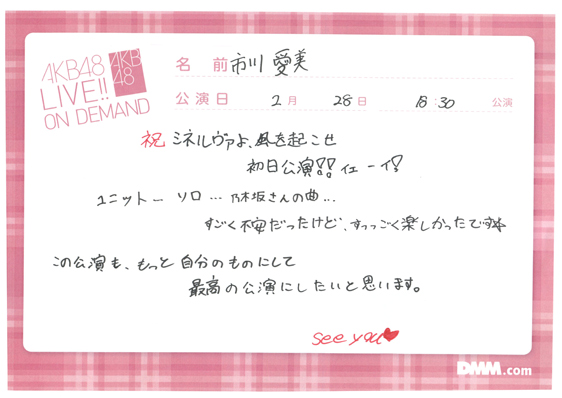 AKB48
LIVE!!
ON DEMAND
AKB
48
名 前 市川 愛美
公演日 2月 28日 18:30 公演
祝 ミネルヴァよ、風を起こせ
初日公演!! イェーイ!
ユニットー ソロ … 乃木坂さんの曲…
すごく不安だったけど、すっっごく楽しかったです
この公演も、もっと自分のものにして
最高の公演にしたいと思います。
see you
DMM.com